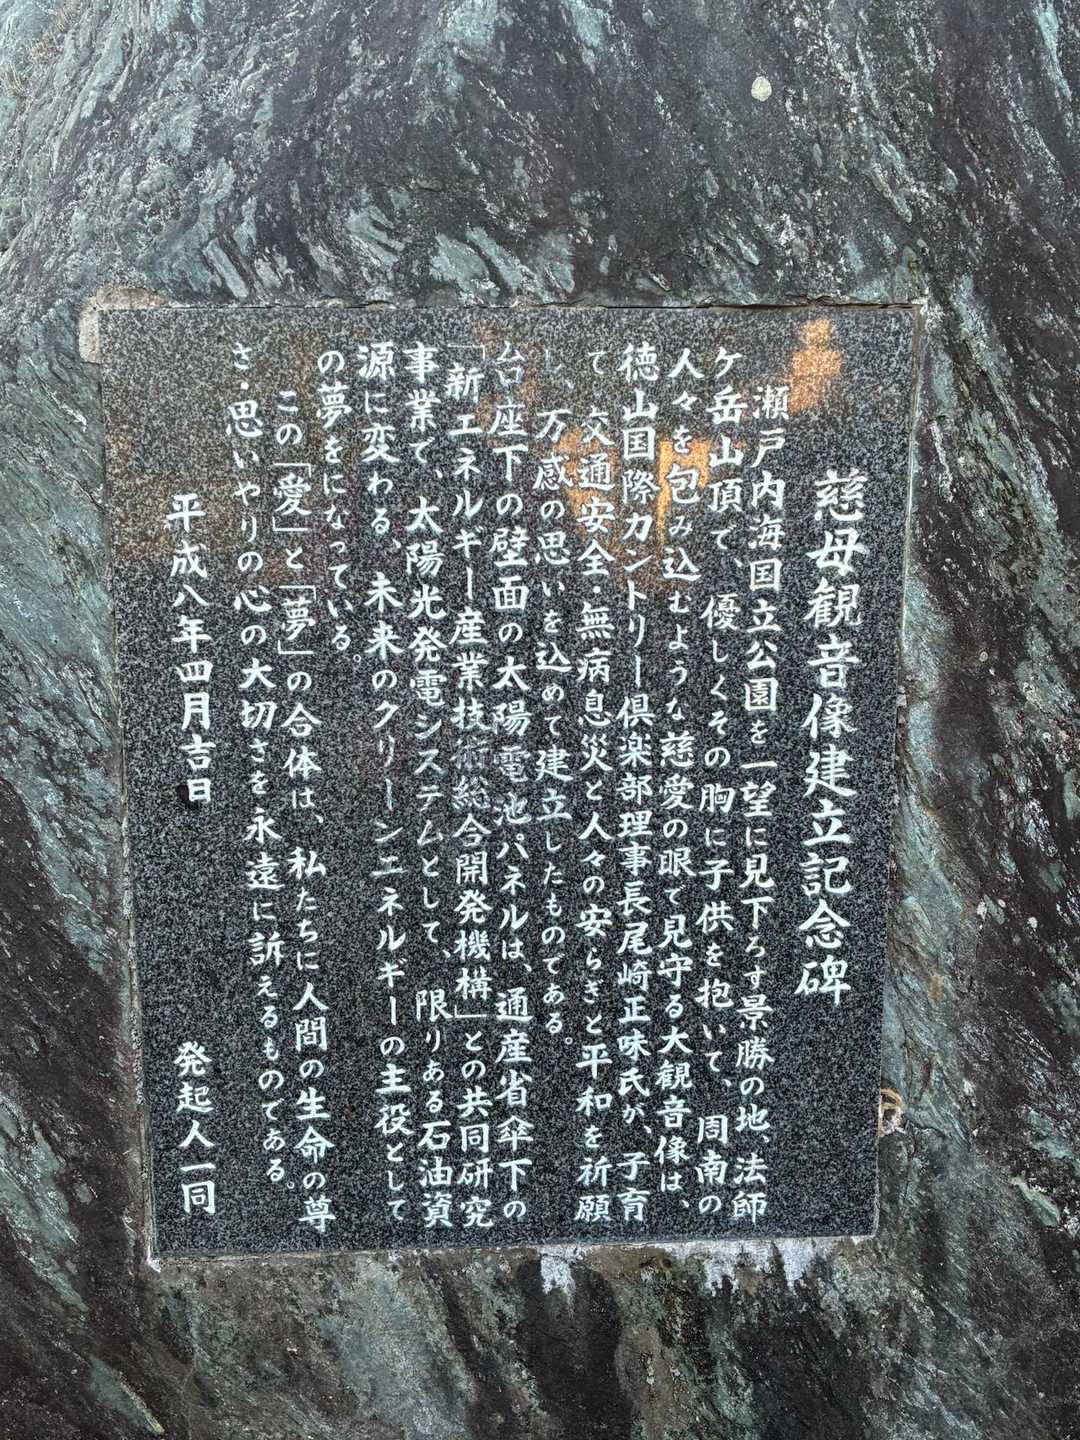 慈母観音像建立記念碑
瀬戸内海国立公園を一望に見下ろす景勝の地、法師
ケ岳山頂で、優しくその胸に子供を抱いて、周南の
人々を包み込むような慈愛の眼で見守る大観音像は、
徳山国際カントリー倶楽部理事長尾崎正味氏が、子育
て交通安全・無病息災と人々の安らぎと平和を祈願
し、万感の思いを込めて建立したものである。
台座下の壁面の太陽電池パネルは、通産省傘下の
「新エネルギー産業技術総合開発機構」との共同研究
事業で、太陽光発電システムとして、限りある石油資
源に変わる、未来のクリーンエネルギーの主役として
の夢をになっている。
この「愛」と「夢」の合体は、私たちに人間の生命の尊
さ・思いやりの心の大切さを永遠に訴えるものである。
平成八年四月吉日
発起人一同